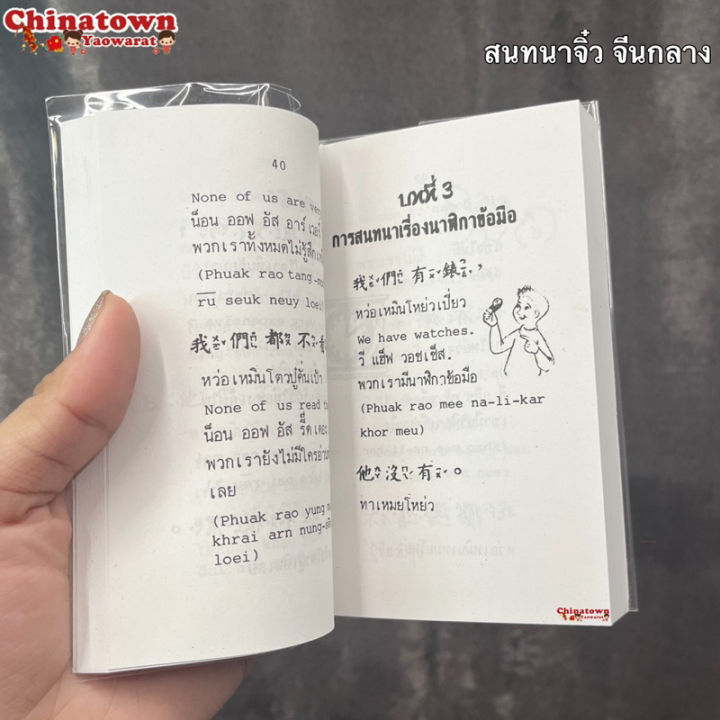 Chinatown
Yaowarat
สนทนาจิ๋ว จีนกลาง
40
None of us are
น็อน ออฟ อัส อาร์
พวกเราทั้งหมดไม่รู้สึก
(Phuak rao tang
ru seuk neuy loei
我們都不
หว่อเหมินโตวปู๋คั่นเป้า
None of us read
น็อน ออฟ อัส รี้ด
พวกเรายังไม่มีใครอ่าน
เลย
(Phuak rao yung
khrai arn nung
loei)
บทที่ 3
การสนทนาเรื่องนาฬิกาข้อมือ
我們有錶,
หว่อเหมินโหย่วเปี่ยว
We have watches.
วี แฮ็ฟ วอชเช็ส.
พวกเรามีนาฬิกาข้อมือ
(Phuak rao mee na-li-kar
khor meu)
他沒有。
ทาเหมยโหย่ว
Chinatown
Yaowarat